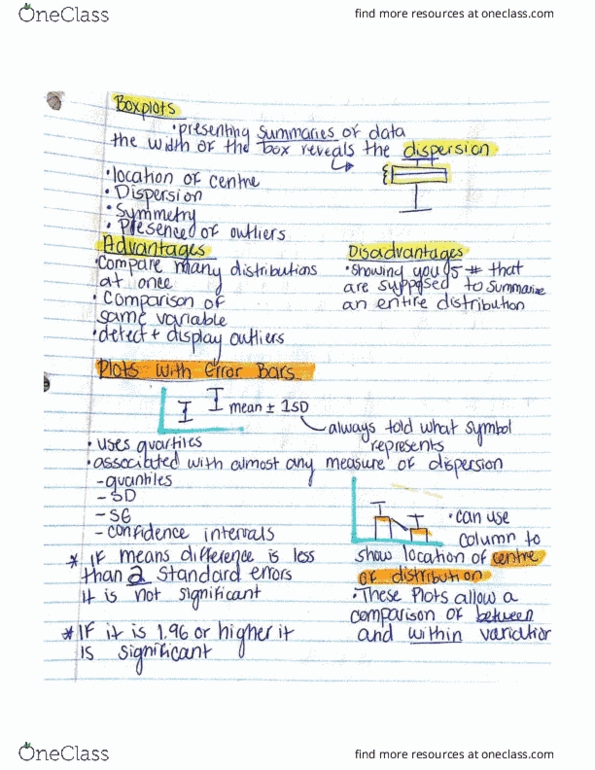 OneClass
find more resources at oneclass.com
Boxplots
• presenting summaries of data
the width of the box reveals the dispersion
• location of centre
• Dispersion
• Symmetry
• Presence of outliers
Advantages
• Compare many distributions
at once
• Comparison of
same variable
• detect + display outliers
Disadvantages
• showing you 5 # that
are supposed to summarize
an entire distribution
Plots with Error Bars
mean ± 1SD
always told what symbol
represents
• uses quartiles
• associated with almost any measure of dispersion
- quantiles
- SD
- SE
- confidence intervals
* IF means difference is less
than 2 standard errors
it is not significant
* IF it is 1.96 or higher it
is significant
• can use
column to
show location of centre
of distribution
• These Plots allow a
comparison of between
and within variation
OneClass
find more resources at oneclass.com